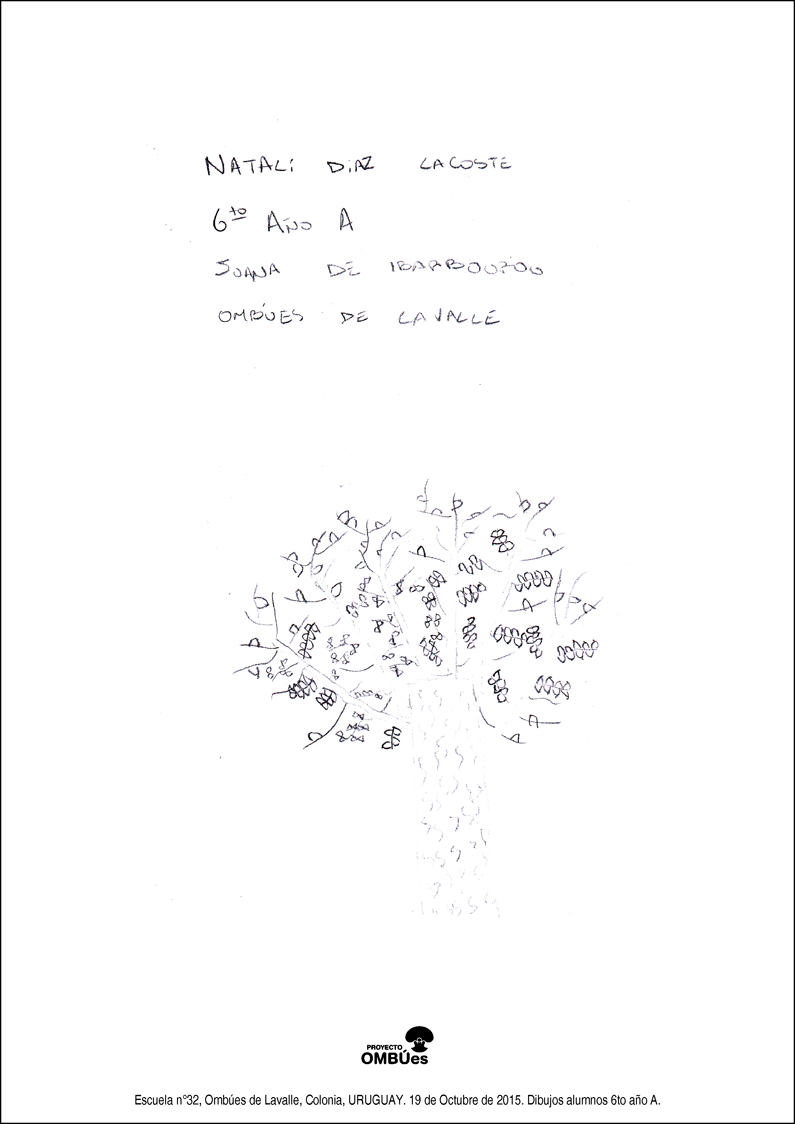 NATALi DiAZ LACOSTE
6to AÑO A
JUANA DE IBARBOUROU
OMBÚES DE LAVALLE
PROYECTO
OMBÚes
Escuela n°32, Ombúes de Lavalle, Colonia, URUGUAY. 19 de Octubre de 2015. Dibujos alumnos 6to año A.